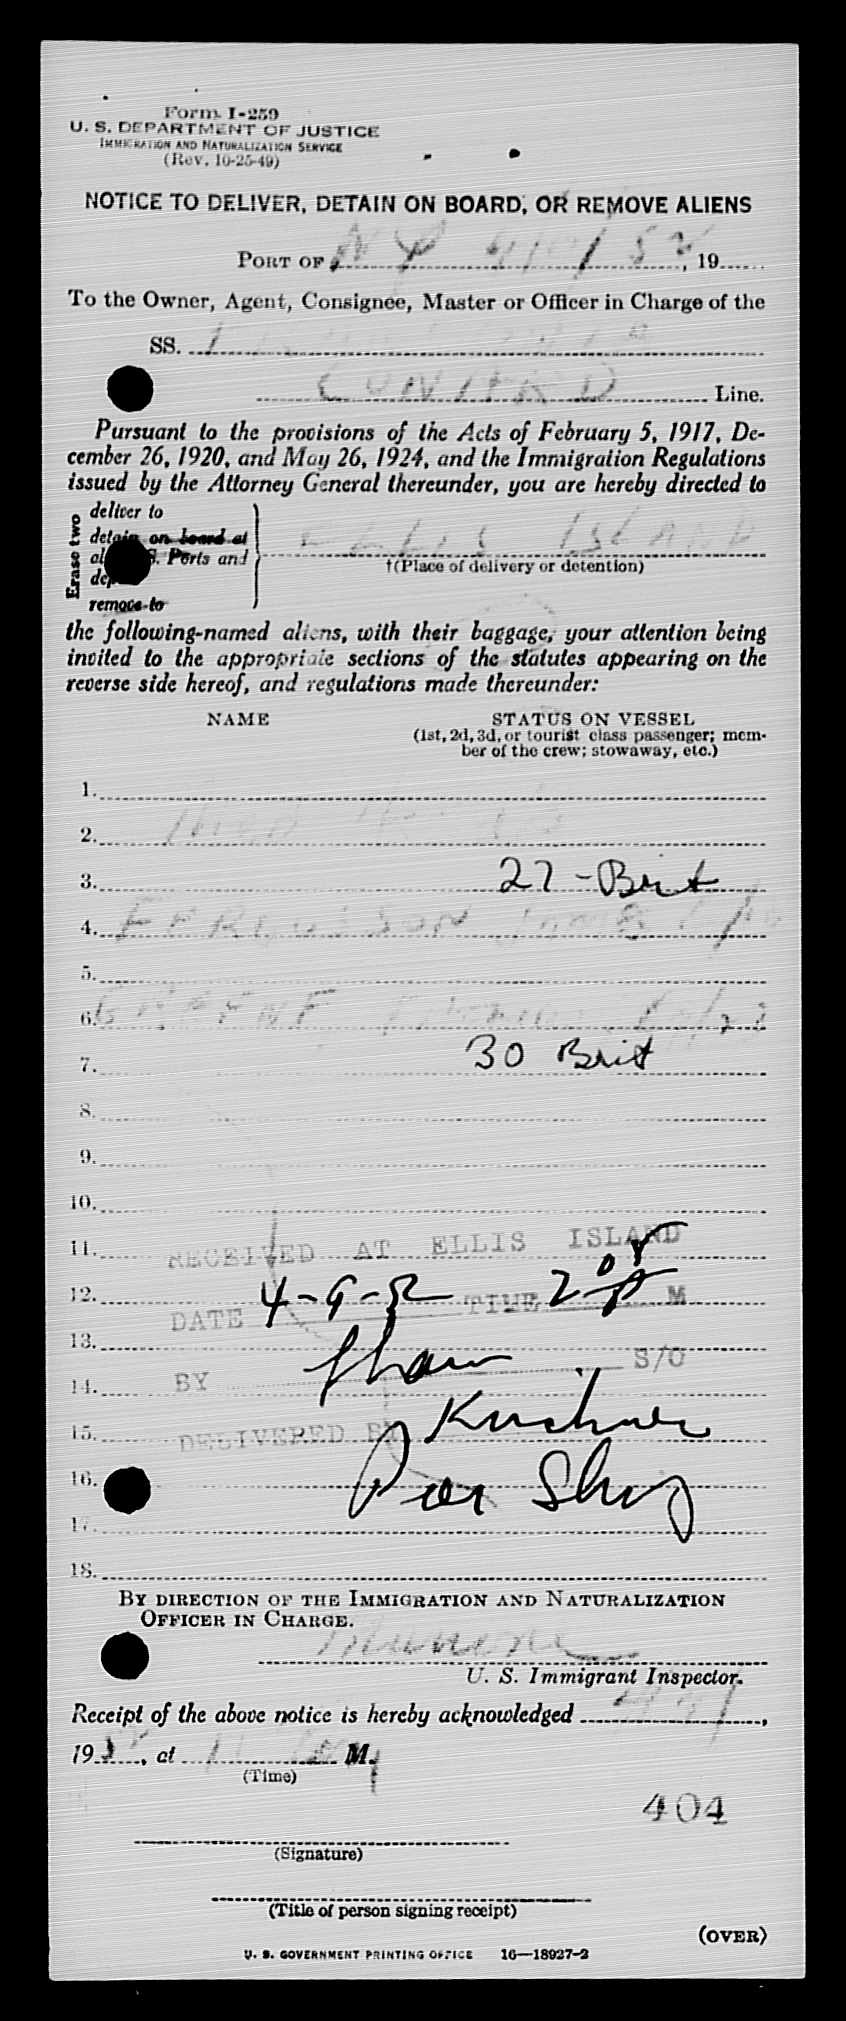 Form I-259
U. S. DEPARTMENT OF JUSTICE
IMMIGRATION AND NATURALIZATION SERVICE
(Rev. 10-25-49)
NOTICE TO DELIVER, DETAIN ON BOARD, OR REMOVE ALIENS
PORT OF NY 4/9/52, 19
To the Owner, Agent, Consignee, Master or Officer in Charge of the
SS.
CUNARD Line.
Pursuant to the provisions of the Acts of February 5, 1917, De-
cember 26, 1920, and May 26, 1924, and the Immigration Regulations
issued by the Attorney General thereunder, you are hereby directed to
Erase two
deliver to
detain on board at
S. Ports and
remove to
ELLIS ISLAND
†(Place of delivery or detention)
the following-named aliens, with their baggage, your attention being
invited to the appropriate sections of the statutes appearing on the
reverse side hereof, and regulations made thereunder:
NAME STATUS ON VESSEL
(1st, 2d, 3d, or tourist class passenger; mem-
ber of the crew; stowaway, etc.)
1.
2.
3. 27 - Brit
4. FERGUSON James
5.
6. GREENE
7. 30 Brit
8.
9.
10.
11. RECEIVED AT ELLIS ISLAND
12. DATE 4-9-52 TIME 2 M
13.
14. BY Shaw S/O
15. DELIVERED BY Kushner
16.
17.
18.
BY DIRECTION OF THE IMMIGRATION AND NATURALIZATION
OFFICER IN CHARGE.
U. S. Immigrant Inspector.
Receipt of the above notice is hereby acknowledged
1952, at 11 M.
(Time)
404
(Signature)
(Title of person signing receipt)
(OVER)
U. S. GOVERNMENT PRINTING OFFICE 16—18927-2